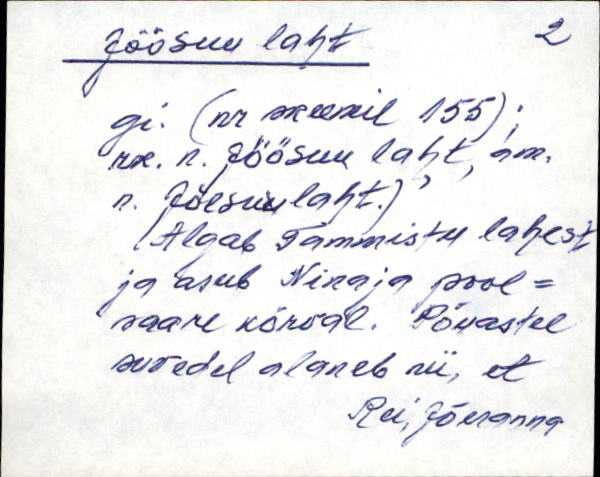 Jöösuu laht 2
gi. (nr skeemil 155);
rx. n. Jöösuu laht, am.
n. Jõesuulaht.)
Algab Tammistu lahest
ja asub Ninaja pool=
saare kõrval. Põuastel
suvedel alaneb nii, et
Rei, Jõeranna